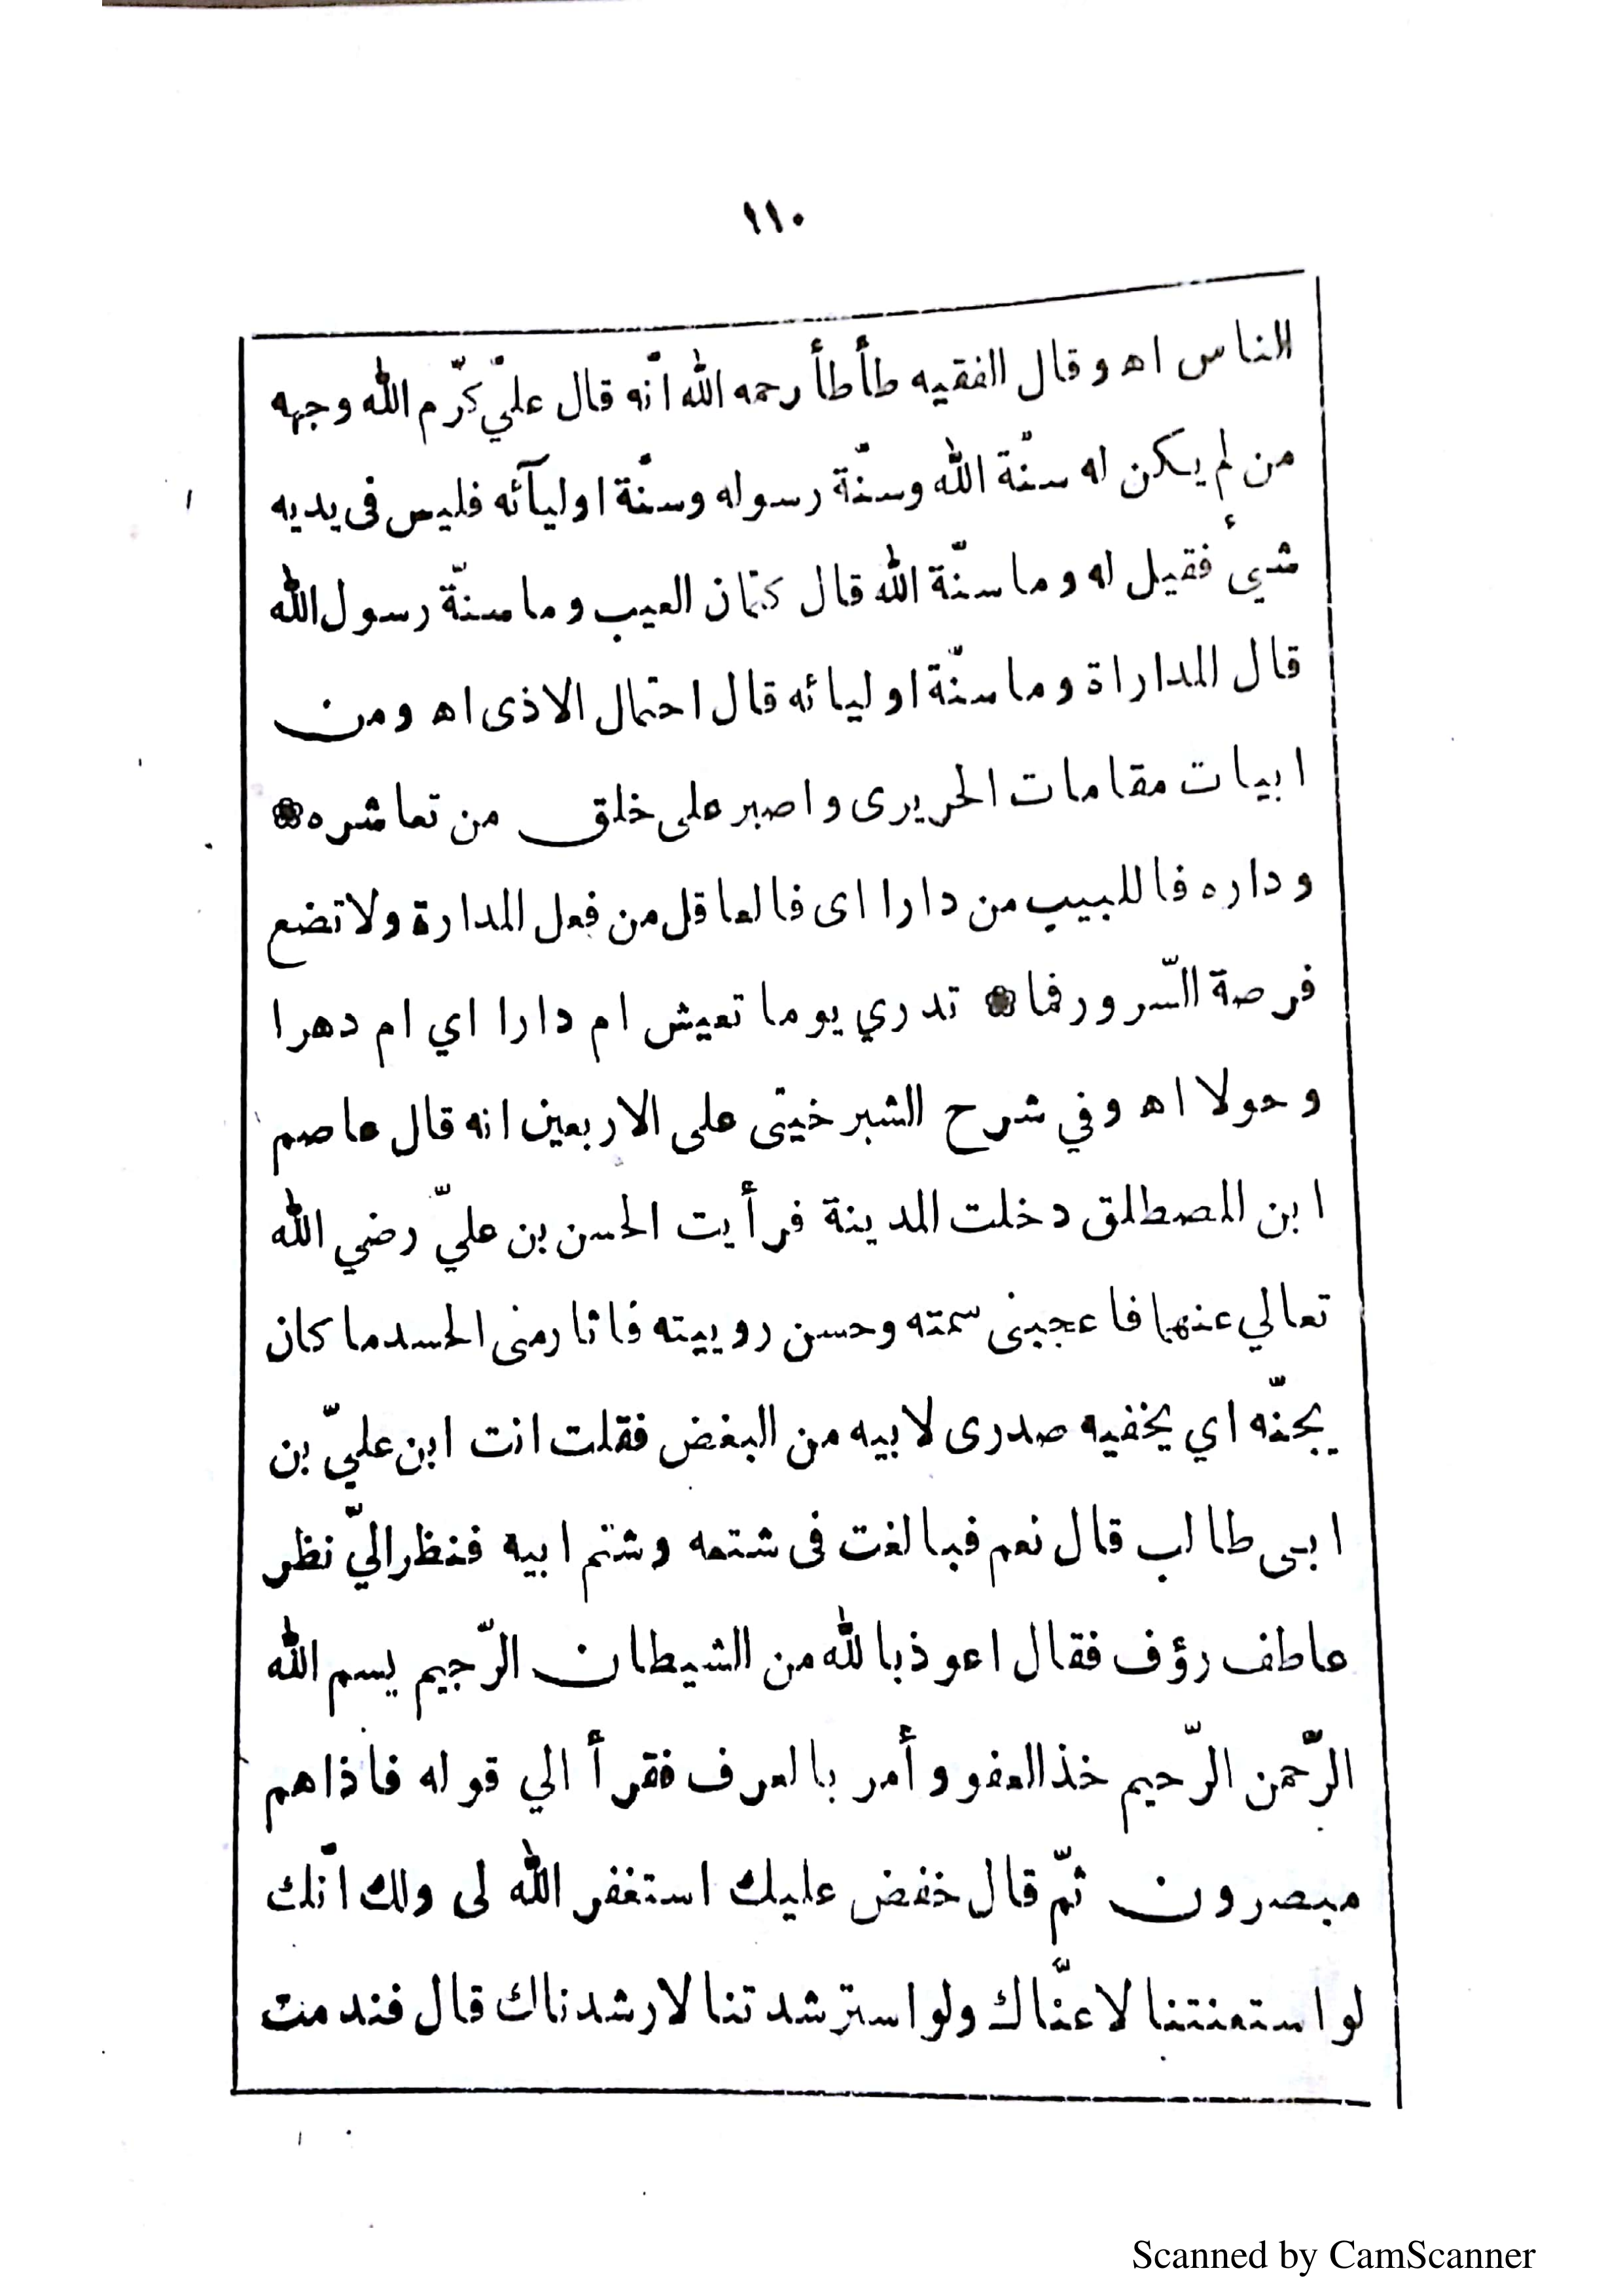 ١١٠
الناس اه وقال الفقيه طأطأ رحمه الله أنّه قال عليّ كرّم الله وجهه
من لم يكن له سنّة الله وسنّة رسوله وسنّة اوليآئه فليس فى يديه
شيئ فقيل له وما سنّة الله قال كتمان العيب وما سنّة رسول الله
قال المداراة وما سنّة اوليائه قال احتمال الاذى اه ومن
ابيات مقامات الحريرى واصبر على خلق من تعاشره ❁
وداره فاللبيب من دارا اى فالعاقل من فعل المدارة ولا تضع
فرصة السّرور فما ❁ تدري يوما تعيش ام دارا اي ام دهرا
وحولا اه وفي شرح الشبرخيتى على الاربعين انه قال عاصم
ابن المصطلق دخلت المدينة فرأيت الحسن بن عليّ رضي الله
تعالي عنهما فاعجبنى سمته وحسن روييته فاثارمنى الحسد ما كان
يجنّه اي يخفيه صدرى لابيه من البغض فقلت انت ابن عليّ بن
ابى طالب قال نعم فبالغت فى شتمه وشتم ابيه فنظر اليّ نظر
عاطف رؤف فقال اعوذ بالله من الشيطان الرّجيم بسم الله
الرّحمن الرّحيم خذ العفو وأمر بالعرف فقرأ الي قوله فاذاهم
مبصرون ثمّ قال خفض عليك استغفر الله لى ولك انّك
لو استعنتنا لاعنّاك ولو استرشدتنا لارشدناك قال فندمت
Scanned by CamScanner